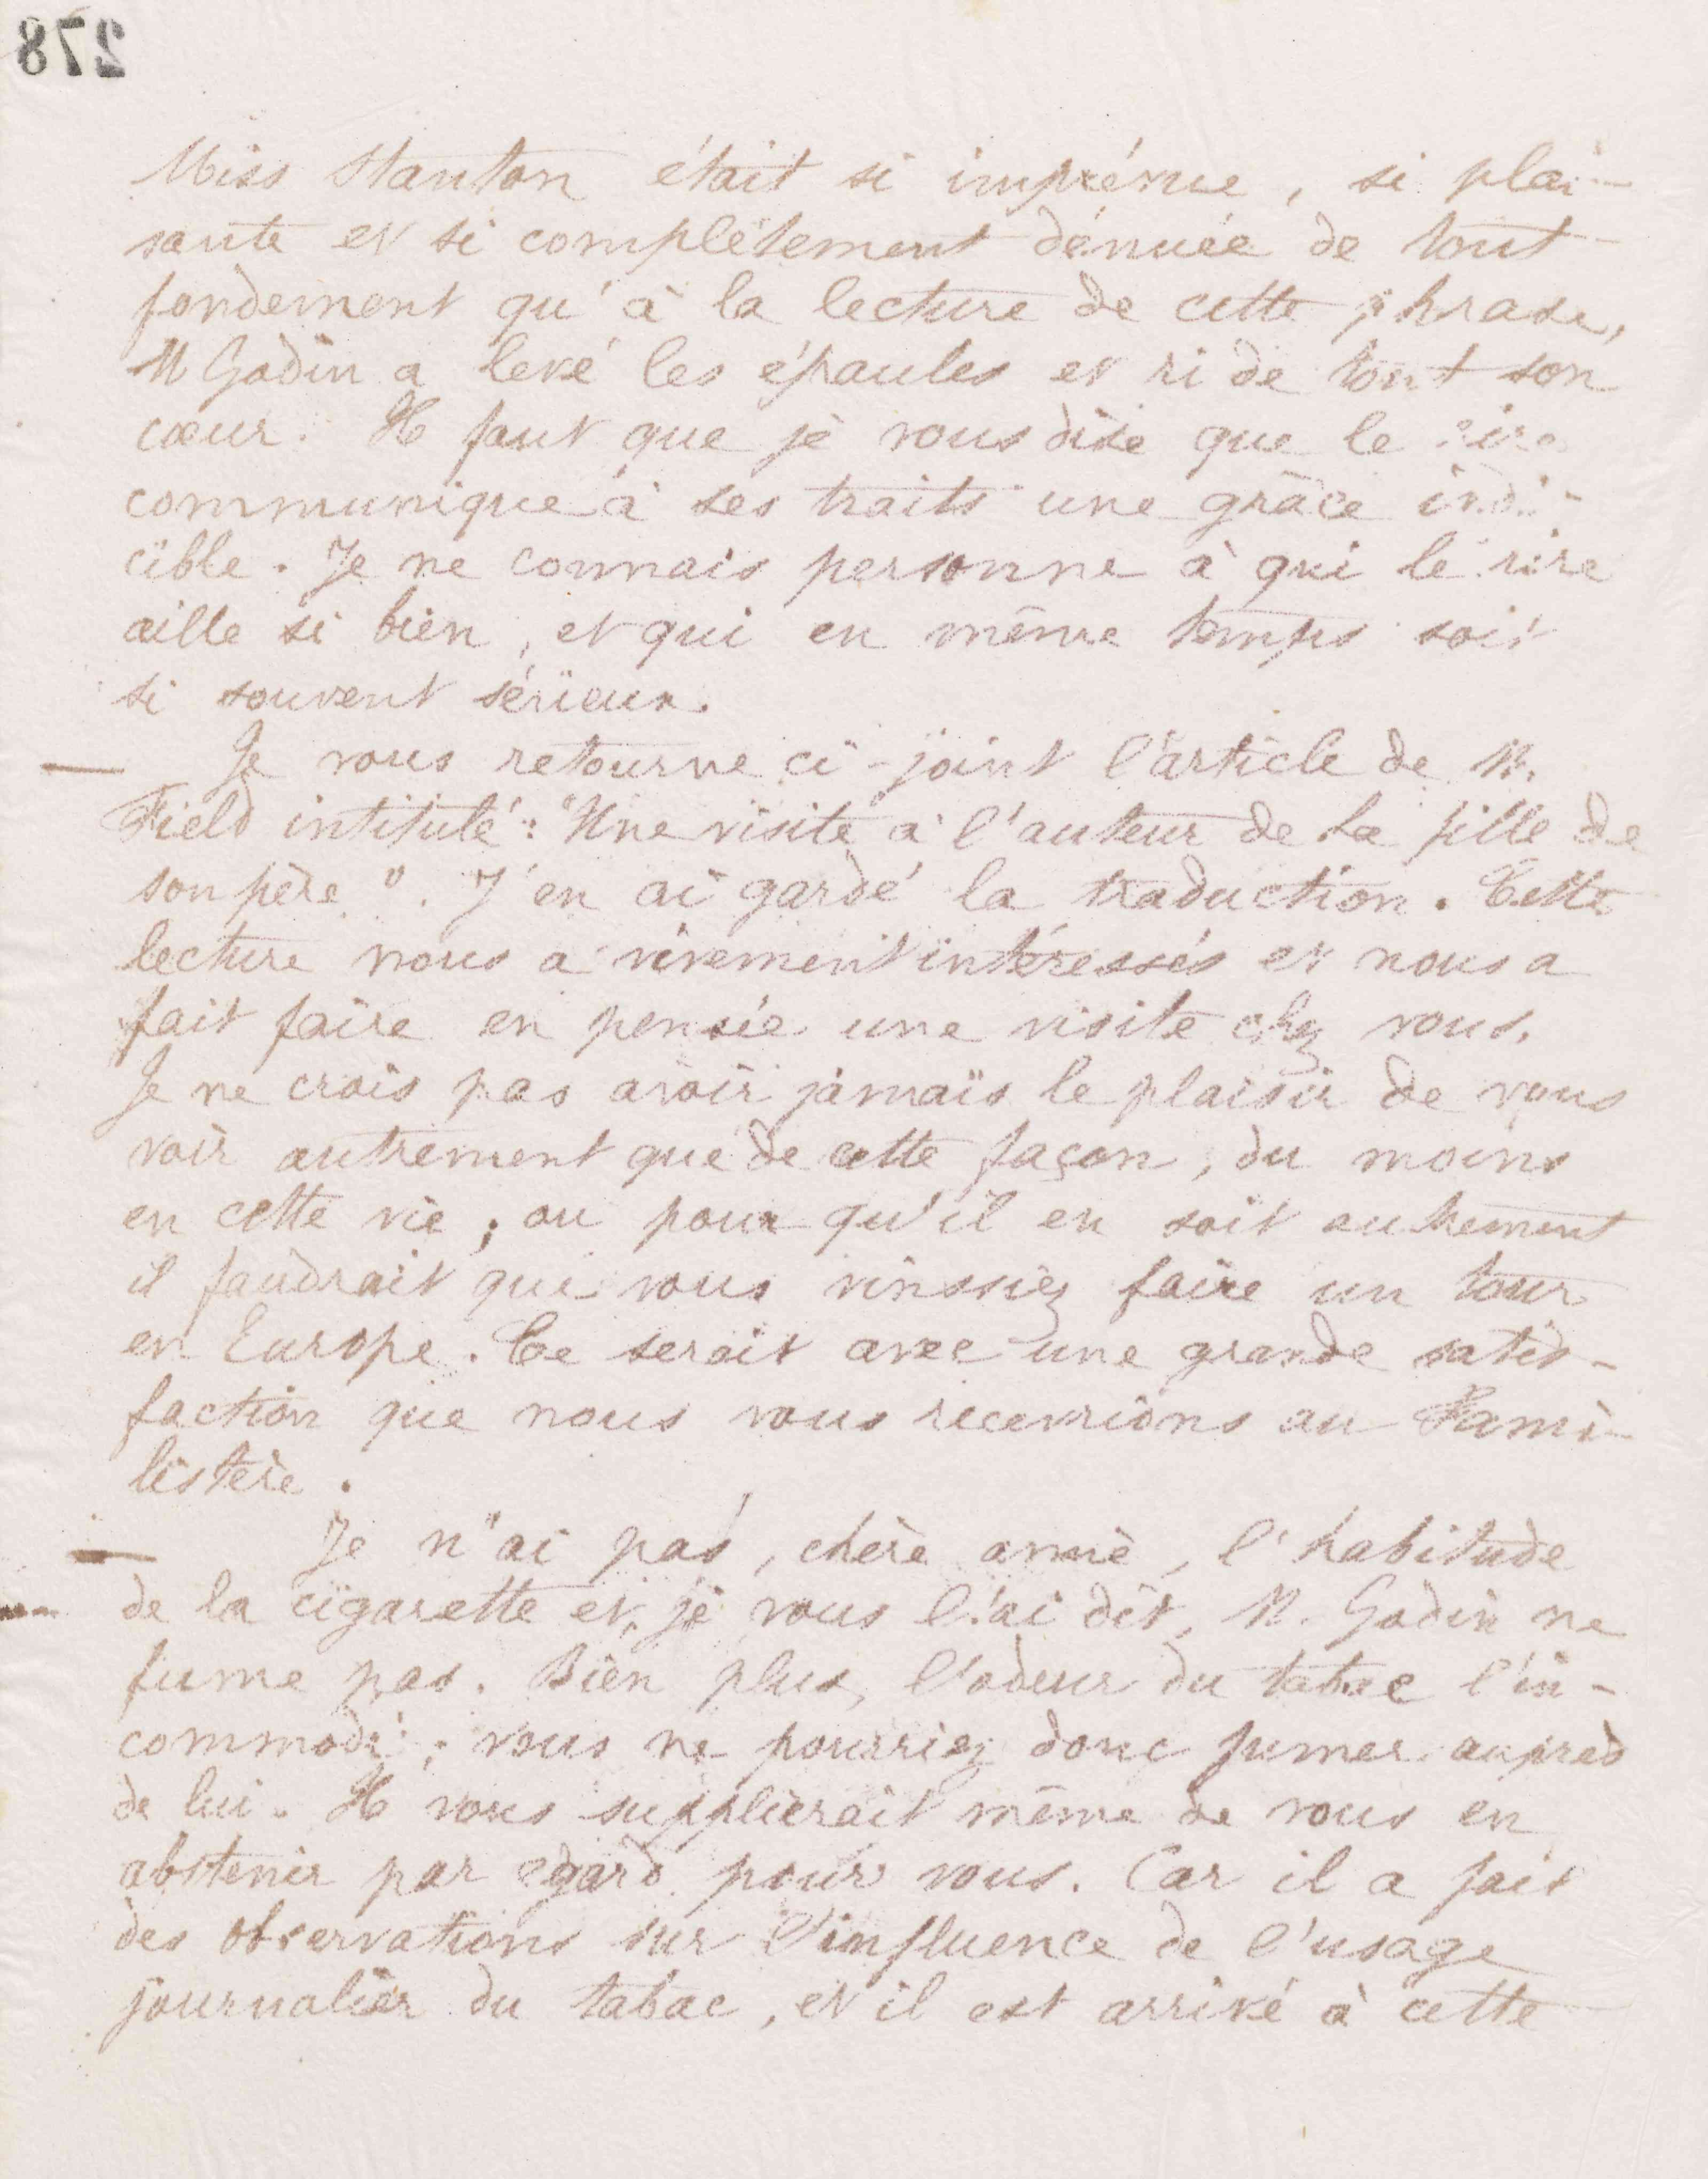 278
Miss Stanton était si imprévue, si plai-
sante et si complètement dénuée de tout
fondement qu'à la lecture de cette phrase,
M Godin a levé les épaules et ri de tout son
cœur. Il faut que je vous dise que le rire
communique à ses traits une grâce indi-
cible. Je ne connais personne à qui le rire
aille si bien, et qui en même temps soit
si souvent sérieux.
— Je vous retourne ci-joint l'article de M.
Field intitulé: "Une visite à l'auteur de La fille de
son père". J'en ai gardé la traduction. Cette
lecture nous a vivement intéressés et nous a
fait faire en pensée une visite chez vous.
Je ne crois pas avoir jamais le plaisir de vous
voir autrement que de cette façon, du moins
en cette vie; ou pour qu'il en soit autrement
il faudrait que vous vinssiez faire un tour
en Europe. Ce serait avec une grande satis-
faction que nous vous recevrions au Fami-
listère.
— Je n'ai pas, chère amie, l'habitude
de la cigarette et, je vous l'ai dit, M. Godin ne
fume pas. Bien plus, l'odeur du tabac l'in-
commode; vous ne pourriez donc fumer auprès
de lui. Il vous supplierait même de vous en
abstenir par egard pour vous. Car il a fait
des observations sur l'influence de l'usage
journalier du tabac, et il est arrivé à cette